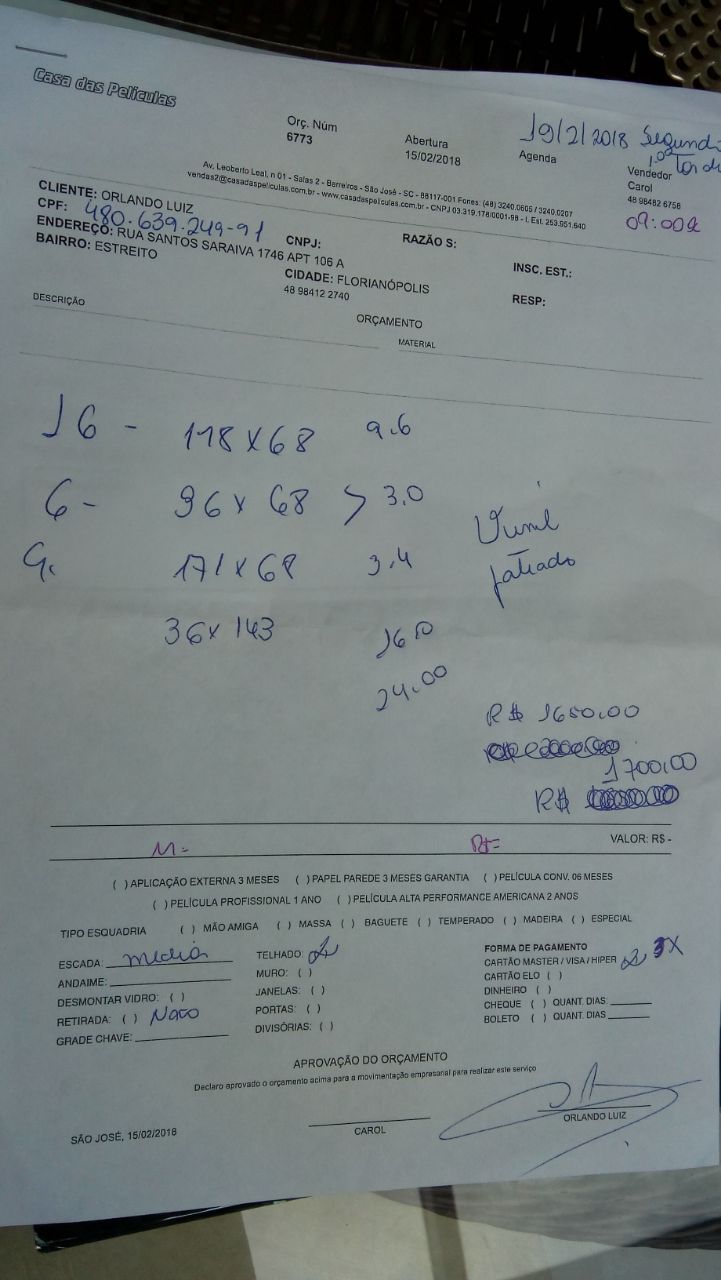 Casa das Películas
Orç. Núm
6773
Abertura
15/02/2018
19/2/2018 Segunda
Agenda
Vendedor
Carol
48 98482 6758
09:00
Av. Leoberto Leal, n 01 - Salas 2 - Barreiros - São José - SC - 88117-001 Fones: (48) 3240.0605 / 3240.0207
vendas2@casadaspeliculas.com.br - www.casadaspeliculas.com.br - CNPJ 03.319.178/0001-98 - I. Est. 253.951.540
CLIENTE: ORLANDO LUIZ
CPF: 480.639.249-91
CNPJ:
RAZÃO S:
ENDEREÇO: RUA SANTOS SARAIVA 1746 APT 106 A
INSC. EST.:
BAIRRO: ESTREITO
CIDADE: FLORIANÓPOLIS
48 98412 2740
RESP:
ORÇAMENTO
DESCRIÇÃO
MATERIAL
16 - 118 x 68 9.6
6 - 96 x 68 > 3.0
171 x 68 3.4
Vinil
jateado
36 x 143
24.00
R$ 1650,00
1700,00
R$
M=
R$=
VALOR: R$ -
( ) APLICAÇÃO EXTERNA 3 MESES ( ) PAPEL PAREDE 3 MESES GARANTIA ( ) PELÍCULA CONV. 06 MESES
( ) PELÍCULA PROFISSIONAL 1 ANO ( ) PELÍCULA ALTA PERFORMANCE AMERICANA 2 ANOS
TIPO ESQUADRIA ( ) MÃO AMIGA ( ) MASSA ( ) BAGUETE ( ) TEMPERADO ( ) MADEIRA ( ) ESPECIAL
ESCADA: media
TELHADO:
FORMA DE PAGAMENTO
CARTÃO MASTER / VISA / HIPER 3X
ANDAIME:
MURO: ( )
CARTÃO ELO ( )
DESMONTAR VIDRO: ( )
JANELAS: ( )
DINHEIRO ( )
RETIRADA: ( ) Nao
PORTAS: ( )
CHEQUE ( ) QUANT. DIAS:
GRADE CHAVE:
DIVISÓRIAS: ( )
BOLETO ( ) QUANT. DIAS
APROVAÇÃO DO ORÇAMENTO
Declaro aprovado o orçamento acima para a movimentação empresarial para realizar este serviço
SÃO JOSÉ, 15/02/2018
CAROL
ORLANDO LUIZ